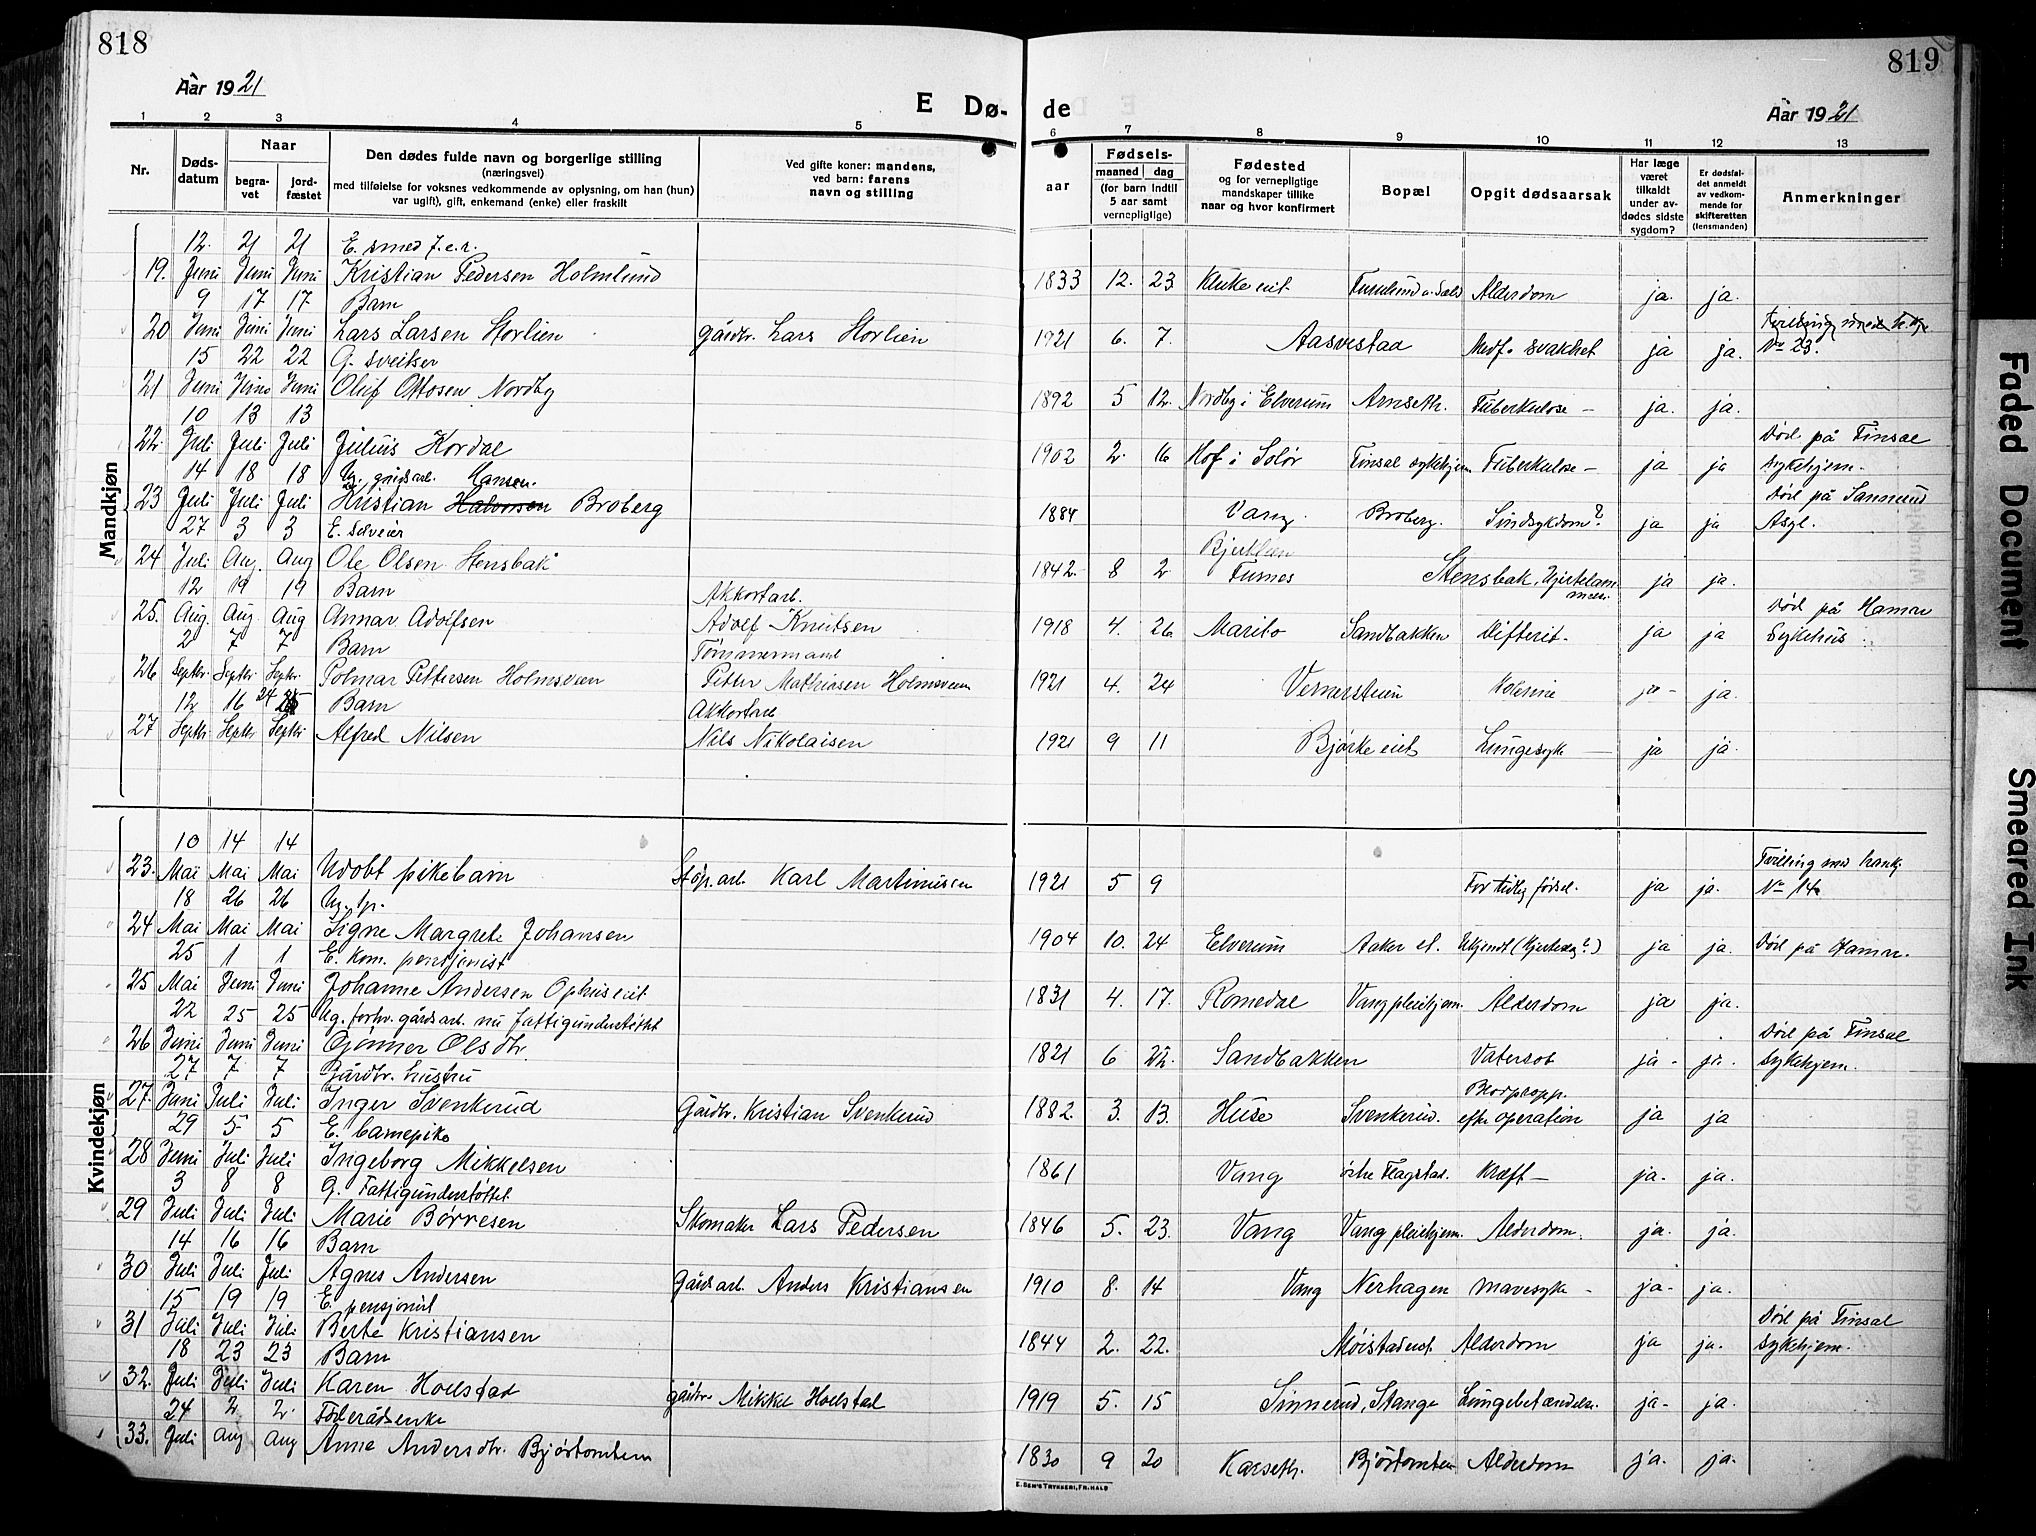 818
819
Aar 1921
E Dø-
de
Aar 1921
1 2 3 4 5
6 7 8 9 10 11 12 13
Nr. Døds-datum Naar begra-vet jord-fæstet
Den dødes fulde navn og borgerlige stilling
(næringsvei)
med tilføielse for voksnes vedkommende av oplysning, om han (hun)
var ugift), gift, enkemand (enke) eller fraskilt
Ved gifte koner: mandens,
ved barn: farens
navn og stilling
Fødsels-
aar maaned dag
(for barn indtil
5 aar samt
vernepligtige)
Fødested
og for vernepligtige
mandskaper tillike
naar og hvor konfirmert
Bopæl
Opgit dødsaarsak
Har læge
været
tilkaldt
under av-
dødes sidste
sygdom?
Er dødsfal-
det anmeldt
av vedkom-
mende for
skifteretten
(lensmanden)
Anmerkninger
Mandkjøn
12. 21 21 E. smed f.e.r.
19. Juni Juni Juni Kristian Pedersen Holmlund 1833 12. 23 Alderdom ja. ja.
9 17 17 Barn
20 Juni Juni Juni Lars Larsen Storlien gårdbr. Lars Storlien 1921 6. 7. Aasvestad Medf. svakhet ja ja. No 23.
15 22 22 G. sveitser
21 Juni Juni Juni Oluf Ottosen Nordby 1892 5 12. Nordby i Elverum Arnseth. Tuberkulose – ja. ja.
10 13 13
22. Juli Juli Juli Julius Kordal 1902 2. 16 Hof i Solør Finsal sykehjem Tuberkulose – ja ja Død på Finsal sykehjem.
14 18 18 Ug. gårdsarb. Hansen.
23 Juli Juli Juli Kristian Halvorsen Broberg 1884 Vang. Broberg. Sindsykdom? ja ja Død på Sannerud Asyl.
27 3 3 E. selveier
24 Juli Aug. Aug Ole Olsen Stensbak 1842. 8 2 Furnes Stensbak, ja ja.
12 19 19 Barn Akkortarb.
25. Aug. Aug Aug Annar Adolfsen Adolf Knutsen 1918 4. 26 Marilo Sandbakken Difterit. ja ja Død på Hamar Sykehus.
2 7 7 Barn Tømmermand
26 Septbr. Septbr Septbr Polmar Pettersen Holmsveen Petter Mathiasen Holmsveen 1921 4. 24 Kolerine ja – ja.
12 16 24 Barn Akkortarb
27 Septbr Septbr Septbr Alfred Nilsen Nils Nikolaisen 1921 9 11 Bjørke eiet Lungesyke ja ja.
Kvindekjøn
10 14 14
23. Mai Mai Mai Udøbt pikebarn Støp.arb. Karl Martinusen 1921 5 9 For tidlig fødsel. ja ja. Tvilling med hank. No 14.
18 26 26 Ug. tp.
24 Mai Mai Mai Signe Margrete Johansen 1904 10. 24 Elverum Aaker et. Ukjendt ja ja. Død på Hamar.
25 1 1 E. kom. pensjonist
25 Mai Juni Juni Johanne Andersen Ophuseiet 1831 4. 17. Romedal Vang pleiehjem. Alderdom ja ja.
22 25 25 Ug. forhv. gårdsarb. nu fattigunderstøttet
26 Juni Juni Juni Gjønner Olsdtr. 1821 6 22. Sandbakken Vatersot ja – ja. Død på Finsal sykehjem.
27 7 7 Gårdbr. hustru
27. Juni Juli Juli Inger Svenkerud Gårdbr. Kristian Svenkerud 1882. 3. 13. Huse Svenkerud. Blodpropp. efter operation ja ja
29 5 5 E. barnepike
28 Juni Juli Juli Ingeborg Mikkelsen 1861 Vang østre Flagstad. Kræft – ja. ja.
3 8 8 G. Fattigunderstøttet
29 Juli Juli Juli Marie Børresen Skomaker Lars Pedersen 1846 5. 23. Vang Vang pleiehjem. Alderdom. ja. ja.
14 16 16 Barn
30 Juli Juli Juli Agnes Andersen Gårdsarb. Anders Kristiansen 1910 8. 14 Vang Nerhagen mavesyke – ja – ja.
15 19 19 E. pensjonist
31 Juli Juli Juli Berte Kristiansen 1844 2. 22. Møistadeiet Alderdom ja ja. Død på Finsal sykehjem.
18 23 23 Barn
32. Juli Juli Juli Karen Hoelstad gårdbr Mikkel Hoelstad 1919 5. 15 Sinnerud, Stange Lungebetændelse. ja – ja.
24 2 2 Føderådsenke
33. Juli Aug Aug Anne Andersdtr. Bjørtomten 1830 9 20 Karseth. Bjørtomten Alderdom ja. ja.
E. SEM'S TRYKKERI, FR.HALD
Faded Document
Smeared Ink